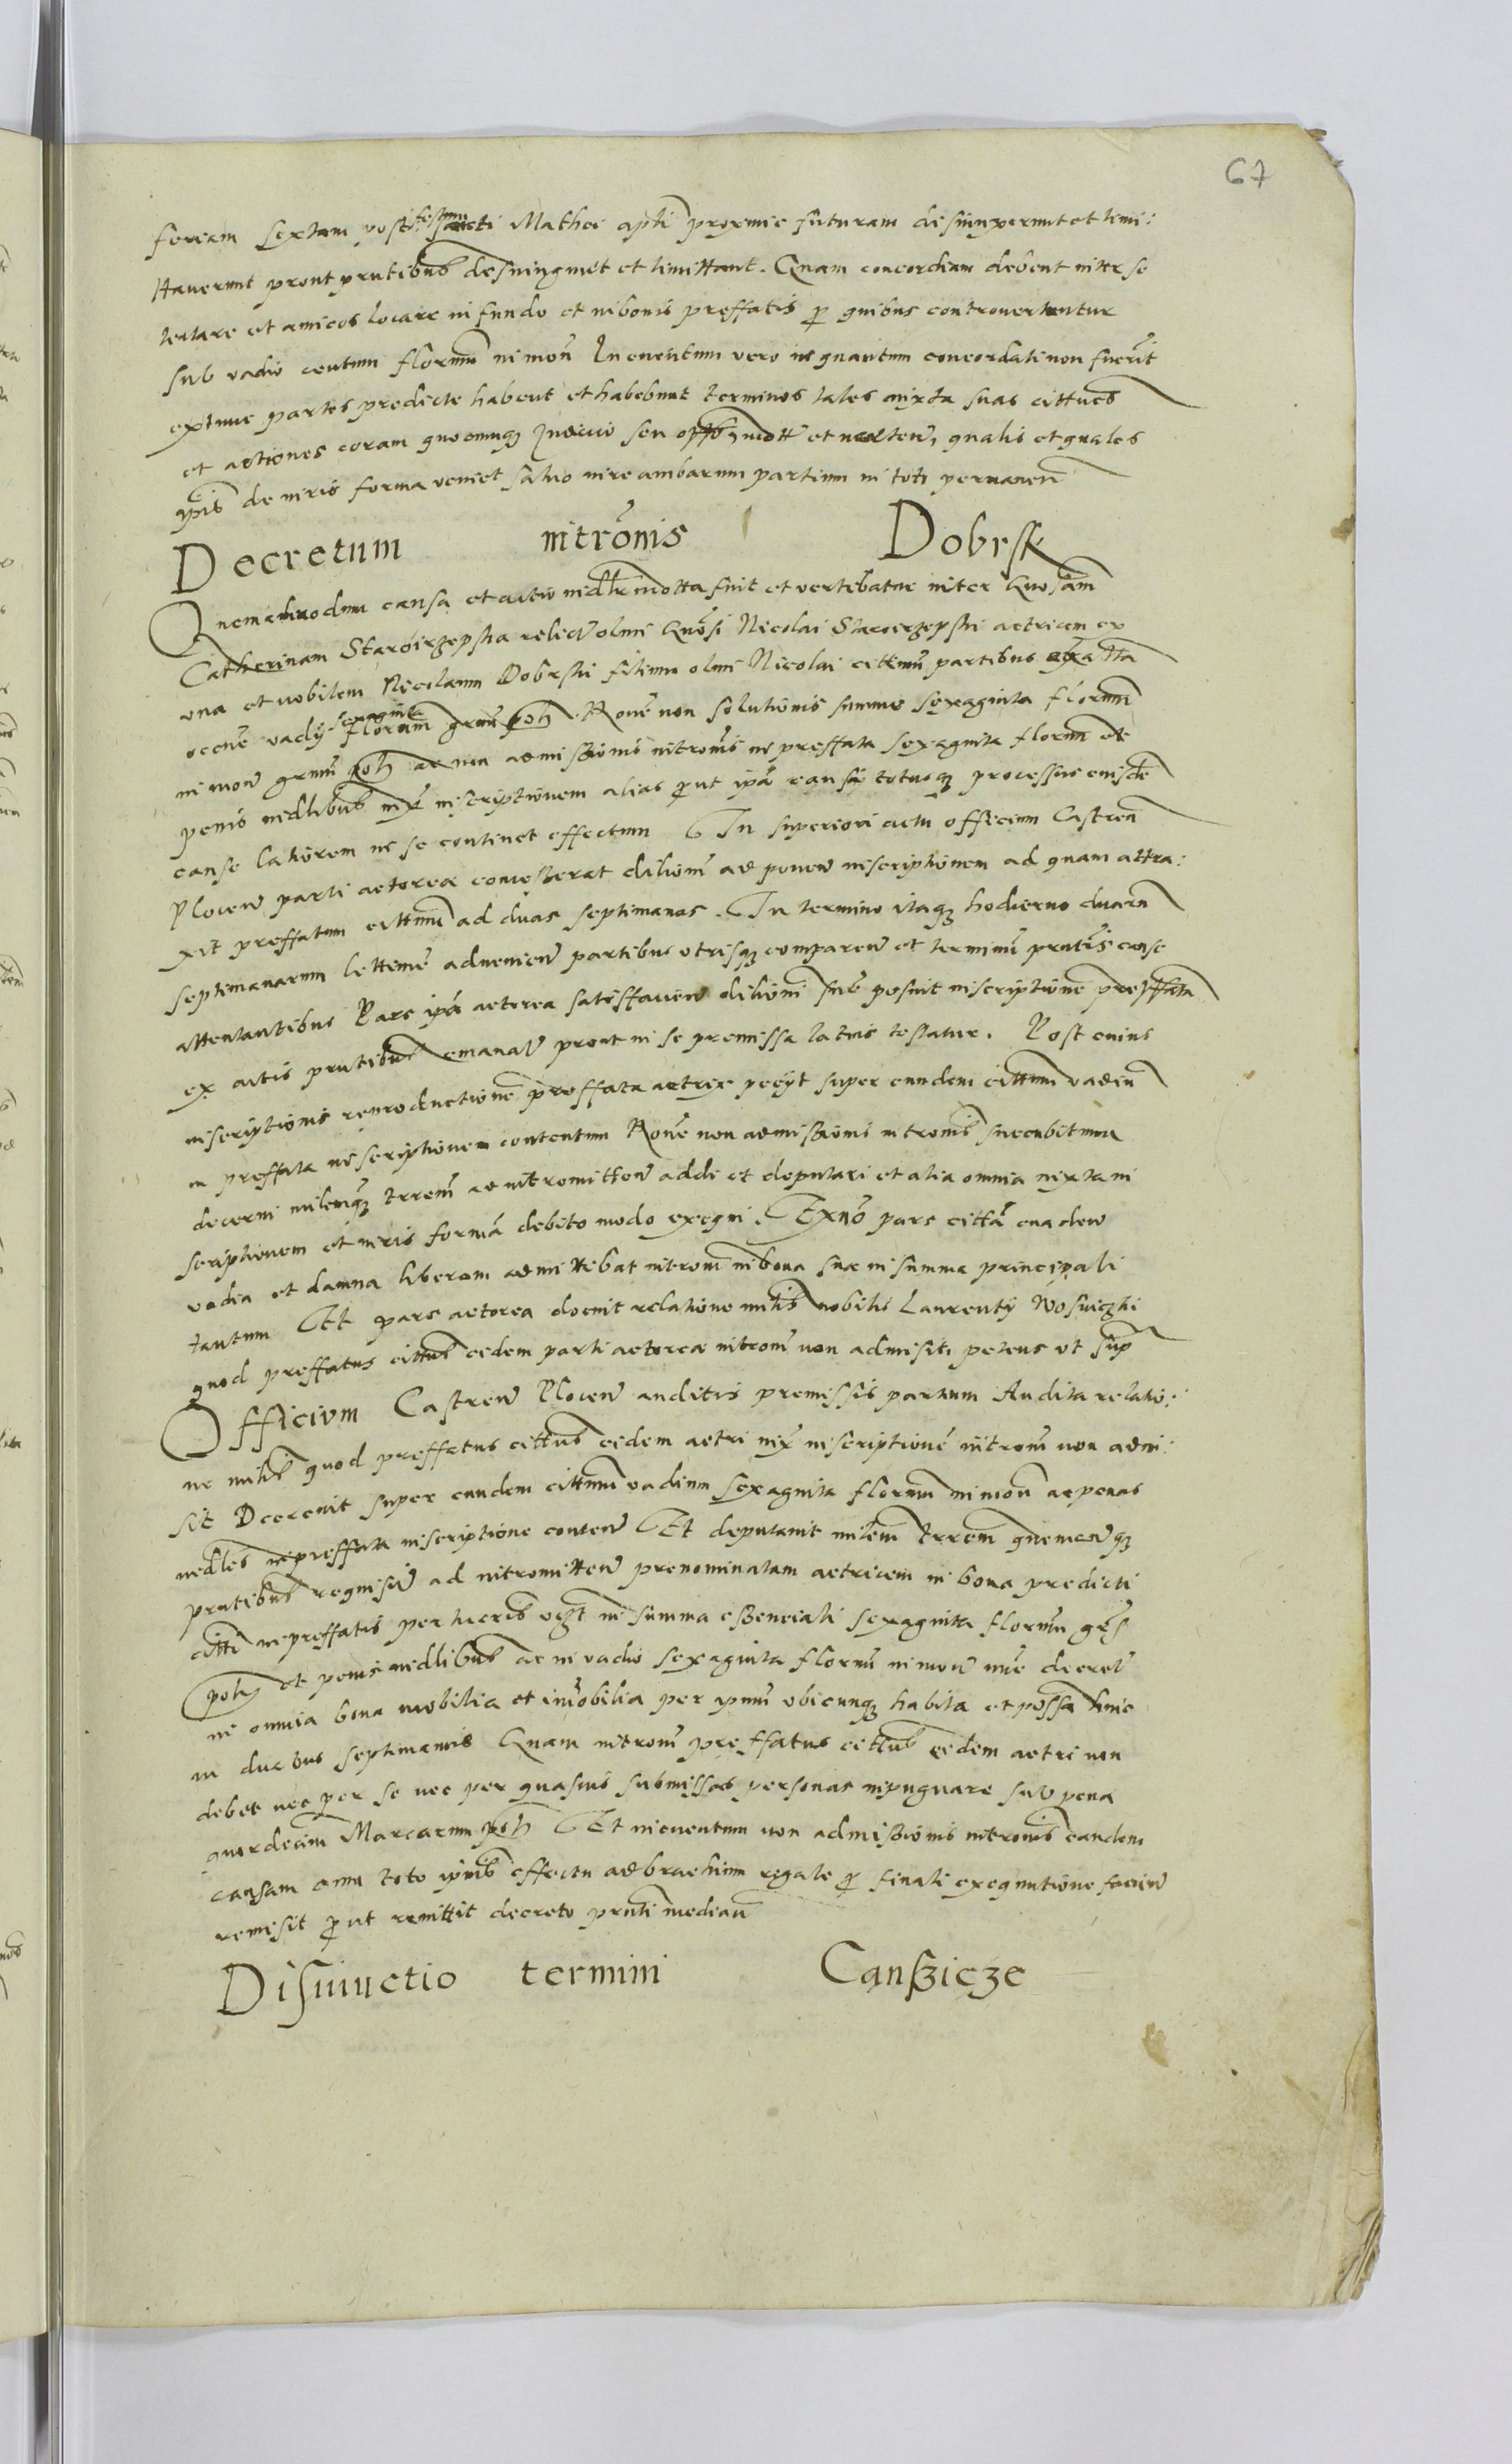 67
feriam sextam post festum sancti Mathei apli proxime futuram disiunxerunt et limi:
ttaverunt prout pntibus disiungunt et limittant. Quam concordiam debent inter se
tentare et amicos locare in fundo et in bonis preffatis p quibus controvertuntur
sub vadio centum florenn in mon In eventum vero in quantum concordati non fuerit
extunc partes predicte habent et habebunt terminos tales iuxta suas cittnes
et actiones coram quocunq Iudicio seu offo, mott et vertten, qualis et quales
ipis de iuris forma veniet salvo iure ambarum partium in toti permanen
Decretum intronis Dobrsk
Quemadmodum causa et actio infdlr motta fuit et vertebatur inter Gnosam
Catherinam Staroirzepska relicta olim Gnosi Nicolai Staroerzepski actricem ex
una et nobilem Nicolaum Dobrski filium olim Nicolai cittum partibus ab altta
occne vadij sexaginta florenn grum poh. Rone non solutionis summe sexaginta florenn
in mon grum poh ac non admissionis intronis in preffata sexaginta floren et
penis infdlibus iux inscriptionem alias put ipa causa totusq processus eiusde
cause latiorem in se continet effectum Et In superiori actu officium Castren
Plocen parti actoree concesserat dilionem ad ponen inscriptionem ad quam attra:
xit preffatum cittum ad duas septimanas. In termino itaq hodierno duarn
septimanarum lettime advenien partibus utrisq comparen et terminu pntis cause
attentantibus Pars ipa actorea satisffacien dilioni sue posuit inscriptione preffata
ex actis pntibus emanat prout in se premissa latius testatur. Post cuius
inscriptionis reproductione preffata actrix petijt super eundem cittum vadiu
in preffata inscriptionem contentum Rone non admissionis intronis succubitum
decerni milemq trrem ad intromitten addi et deputari et alia omnia iuxta in
scriptionem et iuris forma debito modo exequi. Exno pars citta evaden
vadia et damna liberam admittebat intron in bona sua in summa principali
tantum Et pars actorea docuit relatione milis nobilis Laurentij Wosniczki
quod preffatus cittus eidem parti actoree intron non admisit, petens ut sup
Officium Castren Plocen auditis premissis partium Audita relatio:
ne milis quod preffatus cittus eidem actri iux inscriptione intron non admi:
sit Decrevit super eundem cittum vadium sexaginta florenn in mon ac penas
infdles in preffata inscriptione conten Et deputavit milem trrem quemcunq
pntibus requisit ad intromitten prenominatam actricem in bona predicti
citti in preffatis per lucris vzt in summa essenciali sexaginta florenn grs
poh et penis infdlibus ac in vadio sexaginta florenn in mon nunc decret
in omnia bona mobilia et imobilia per ipum ubicunq habita et possa hinc
in duabus septimanis Quam intron preffatus cittus eidem actri non
debet nec per se nec per quasuis submissas personas impugnare sub pena
quordecim Marcarum poh Et in eventum non admissionis intronis eandem
causam cum toto ipius effectu ad brachium regale p finali exequutione facien
remisit put remittit decreto pnti median
Disiunctio termini Cansziczze